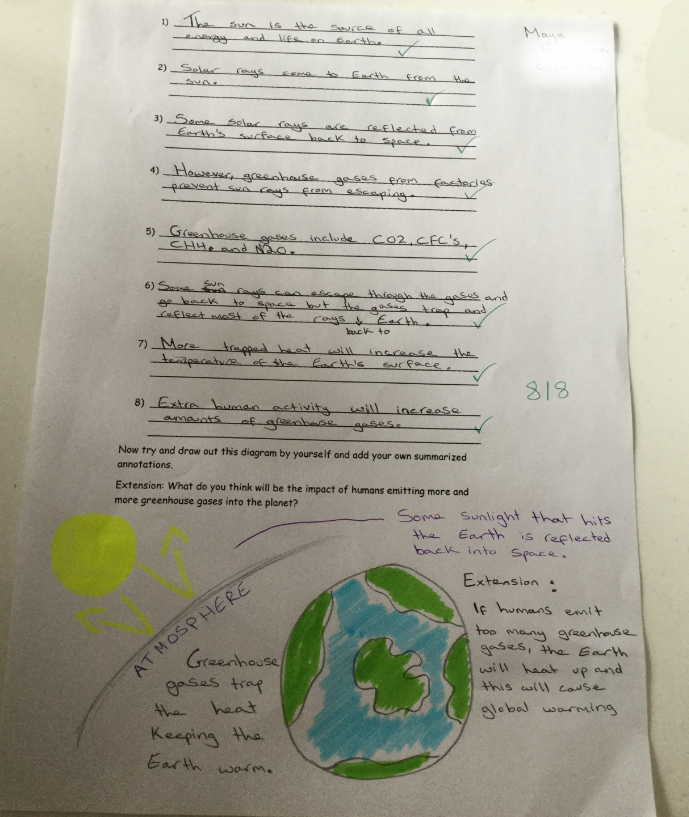 Maya
1) The sun is the source of all
energy and life on Earth.
2) Solar rays come to Earth from the
sun.
3) Some solar rays are reflected from
Earth's surface back to space.
4) However, greenhouse gases from factories
prevent sun rays from escaping.
5) Greenhouse gases include CO2, CFC's,
CH4. and N2O.
6) Some sun rays can escape through the gases and
go back to space but the gases trap and
reflect most of the rays ↓ Earth.
back to
7) More trapped heat will increase the
temperature of the Earth's surface.
8|8
8) Extra human activity will increase
amounts of greenhouse gases.
Now try and draw out this diagram by yourself and add your own summarized
annotations.
Extension: What do you think will be the impact of humans emitting more and
more greenhouse gases into the planet?
Some sunlight that hits
the Earth is reflected
back into space.
ATMOSPHERE
Greenhouse
gases trap
the heat
Keeping the
Earth warm.
Extension :
If humans emit
too many greenhouse
gases, the Earth
will heat up and
this will cause
global warming